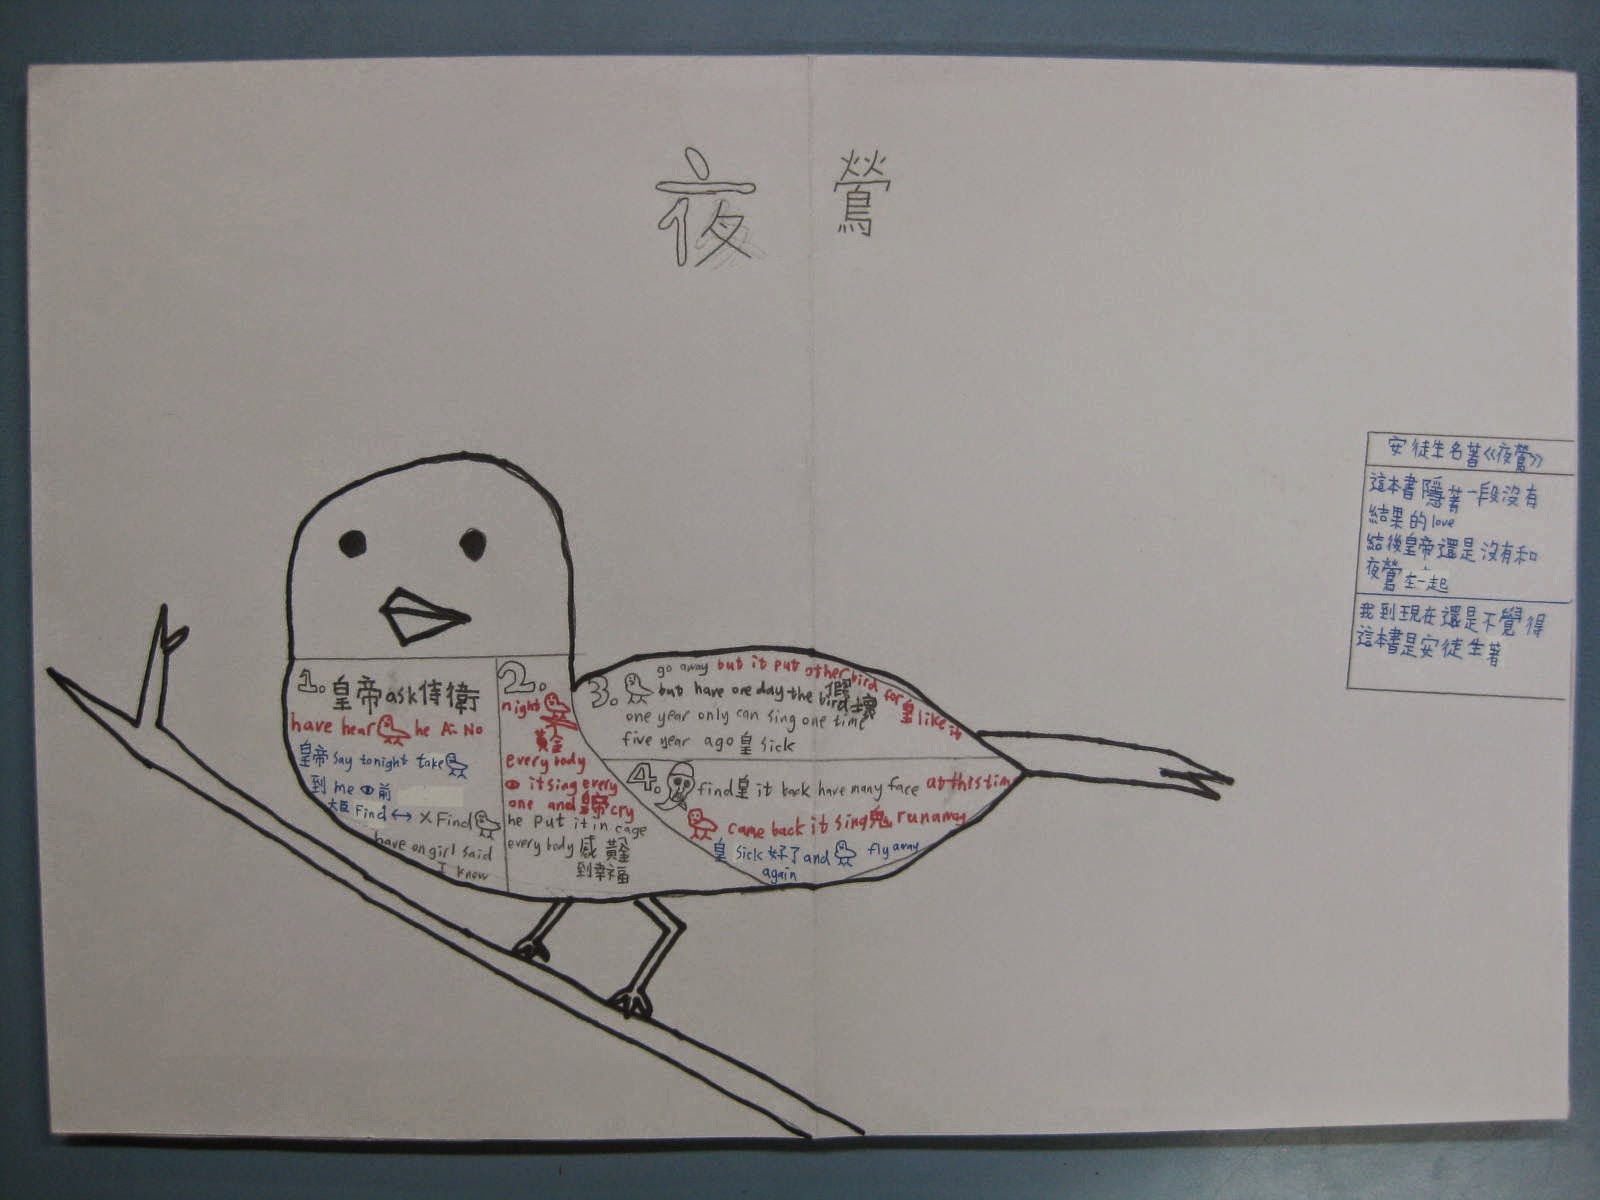 夜 鶯
1. 皇帝 ask 侍衛
have hear he A: No
皇帝 say tonight take
到 me 前
大臣 Find ↔ × Find
have on girl said
I know
2.
night
黃金
every body
it sing every
one and 皇帝 cry
he put it in cage
every body 感 黃金
到幸福
3. go away but it put other bird for 皇 like it
but have one day the bird 假 壞
one year only can sing one time
five year ago 皇 sick
4. find 皇 it back have many face at this tim
came back it sing 鬼 run away
皇 sick 好了 and fly away
again
安徒生名著《夜鶯》
這本書隱著一段沒有
結果的 love
結後皇帝還是沒有和
夜鶯在一起
我到現在還是不覺得
這本書是安徒生著